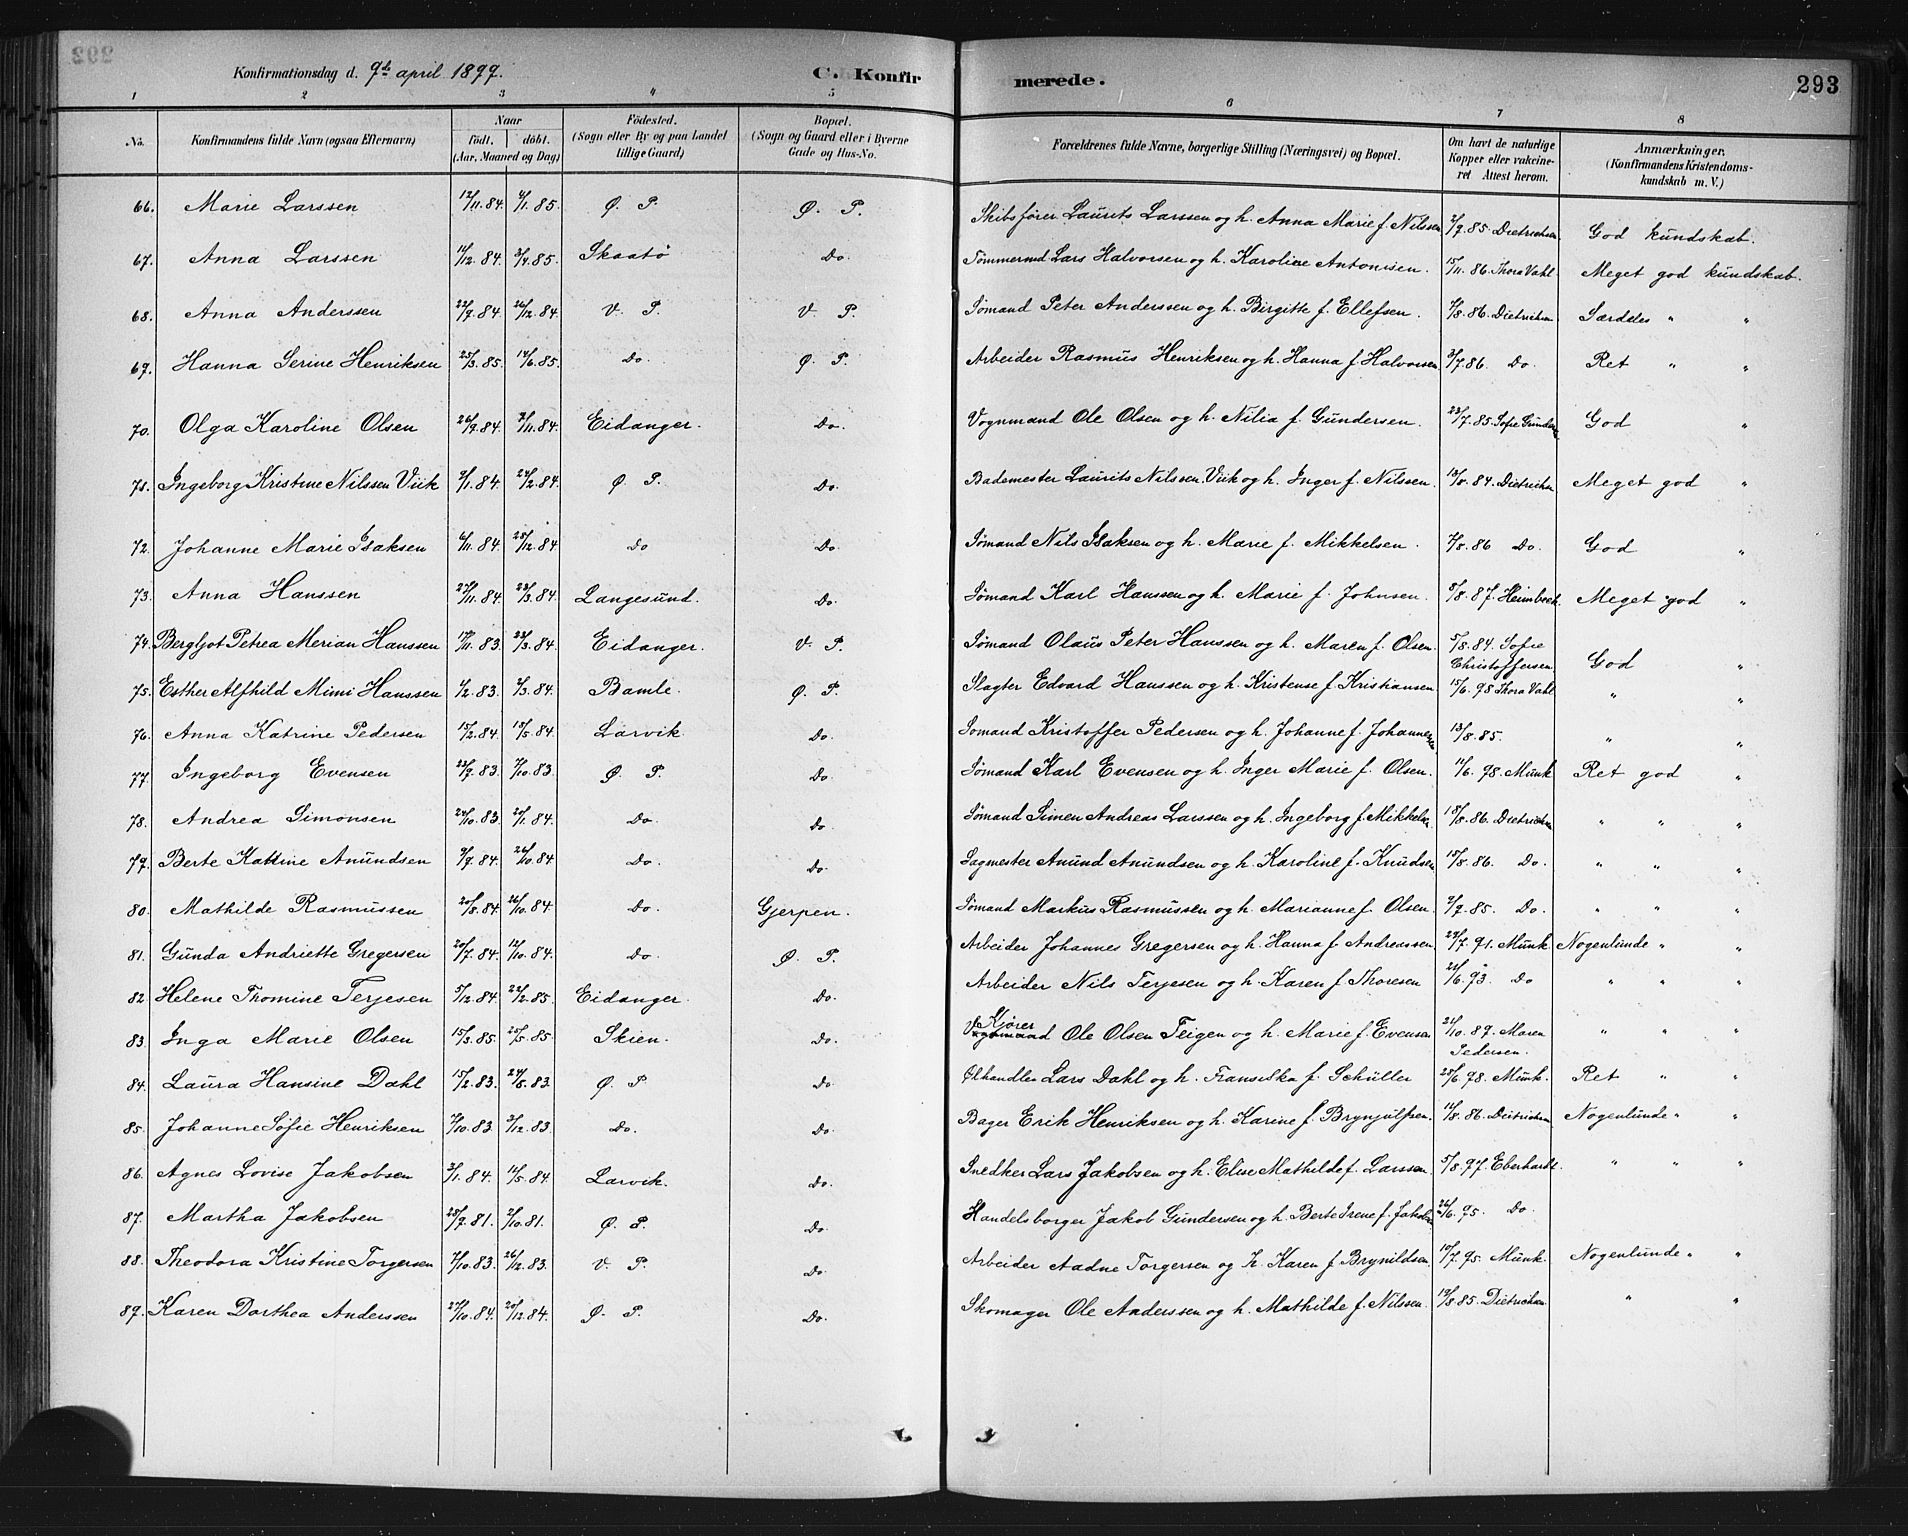 Konfirmationsdag d. 9de april 1899. C. Konfirmerede. 293
1 2 3 4 5 6 7 8
No. Konfirmandens fulde Navn (ogsaa Efternavn) Naar født. døbt. (Aar, Maaned og Dag) Fødested. (Sogn eller By og paa Landet tillige Gaard) Bopæl. (Sogn og Gaard eller i Byerne Gade og Hus-No. Forældrenes fulde Navne, borgerlige Stilling (Næringsvei) og Bopæl. Om havt de naturlige Kopper eller vakcineret Attest herom. Anmærkninger. (Konfirmandens Kristendomskundskab m. V.)
66. Marie Larssen 12/11.84. 4/1.85. Ø. P. Ø. P. Skibsfører Laurits Larssen og h. Anna Marie f. Nilssen 2/9.85 Dietrichsen God kundskab.
67. Anna Larssen 11/12.84. 3/4.85. Skaatø Do. Tømmermd Lars Halvorsen og h. Karoline Antonisen. 15/11.86. Thora Vahl Meget god kundskab.
68. Anna Anderssen 22/9.84 26/12.84 V. P. V. P. Sømand Peter Anderssen og h. Birgitte f. Ellefsen. 7/8.86. Dietrichsen Særdeles " "
69. Hanna Serine Henriksen 25/3.85. 14/6.85. Do. Ø. P. Arbeider Rasmus Henriksen og h. Hanna f. Halvorsen 3/7.86. Do. Ret " "
70. Olga Karoline Olsen 26/9.84 2/11.84. Eidanger. Do. Vognmand Ole Olsen og h. Nilia f. Gundersen. 23/7.85. Sofie Gunders God "
71. Ingeborg Kristine Nilssen Viik 9/1.84. 24/2.84. Ø. P. Do. Bademester Laurits Nilssen Viik og h. Inger f. Nilssen. 13/8.84. Dietrichsen Meget god "
72. Johanne Marie Isaksen 6/11.84. 25/12.84 Do Do. Sømand Nils Isaksen og h. Marie f. Mikkelsen. 7/8.86 Do. God "
73. Anna Hanssen 27/11.84. 23/3.84. Langesund. Do. Sømand Karl Hanssen og h. Marie f. Johnsen. 8/8.87. Heimbeck. Meget god "
74. Bergljot Petrea Merian Hanssen 17/11.83 23/3.84 Eidanger. V. P. Sømand Olaus Peter Hanssen og h. Maren f. Olsen. 5/8.84. Sofie Christoffersen God "
75. Esther Alfhild Mimi Hanssen 1/2.83. 2/3.84. Bamle. Ø. P. Slagter Edvard Hanssen og h. Kristense f. Kristiansen 15/6.98 Thora Vahl " "
76. Anna Katrine Pedersen 15/2.84. 18/5.84. Larvik Do. Sømand Kristoffer Pedersen og h. Johanne f. Johannessen 13/8.85. " "
77. Ingeborg Evensen 23/9.83. 7/10.83. Ø. P. Do. Sømand Karl Evensen og h. Inger Marie f. Olsen. 11/6.98. Munk Ret god "
78. Andrea Simonsen 24/10.83 20/1.84. Do. Do. Sømand Simen Andreas Larssen og h. Ingeborg f. Mikkelsen 18/8.86. Dietrichsen " " "
79. Berte Katrine Anundsen 9/9.84. 26/10.84 Do. Do. Sagmester Anund Anundsen og h. Karoline f. Knudsen 15/8.86. Do. " " "
80. Mathilde Rasmussen 20/8.84. 26/10.84. Do. Gjerpen. Sømand Markus Rasmussen og h. Marianne f. Olsen. 2/9.85. Do. " " "
81. Gunda Andriette Gregersen 20/7.84. 12/10.84. Do. Ø. P. Arbeider Johannes Gregersen og h. Hanna f. Andreassen 29/7.91. Munk Nogenlunde " "
82. Helene Thomine Terjesen 5/12.84. 22/2.85. Eidanger. Do. Arbeider Nils Terjesen og h. Karen f. Thoresen 22/6.93. Do " " "
83. Inga Marie Olsen 15/3.85 25/5.85. Skien. Do. Kjører Ole Olsen Teigen og h. Marie f. Evensen 21/10.89. Maren Pedersen. " " "
84. Laura Hansine Dahl 15/2.83. 27/5.83. Ø. P Do. Ølhandler Lars Dahl og h. Fransiska f. Schüller 25/6.98. Munk. Ret " "
85. Johanne Sofie Henriksen 7/10.83. 3/12.83. Do. Do. Bager Erik Henriksen og h. Karine f. Brynjulfsen. 11/8.86. Dietrichsen Nogenlunde " "
86. Agnes Lovise Jakobsen 3/1.84. 11/5.84. Larvik. Do. Snedker Lars Jakobsen og h. Elise Mathilde f. Larssen 5/8.97. Eberhardt. " " "
87. Martha Jakobsen 28/9.81. 2/10.81. Ø. P. Do. Handelsborger Jakob Gundersen og h. Berte Irene f. Jakobsen 26/6.95. Do
88. Theodora Kristine Torgersen 7/10.83. 26/12.83. V. P. Do. Arbeider Aadne Torgersen og h. Karen f. Brynildsen 10/7.95. Munk. Nogenlunde " "
89. Karen Dorthea Anderssen 27/10.84. 20/12.84. Ø. P. Do. Skomager Ole Anderssen og h. Mathilde f. Nilssen. 19/8.85. Dietrichsen. " "